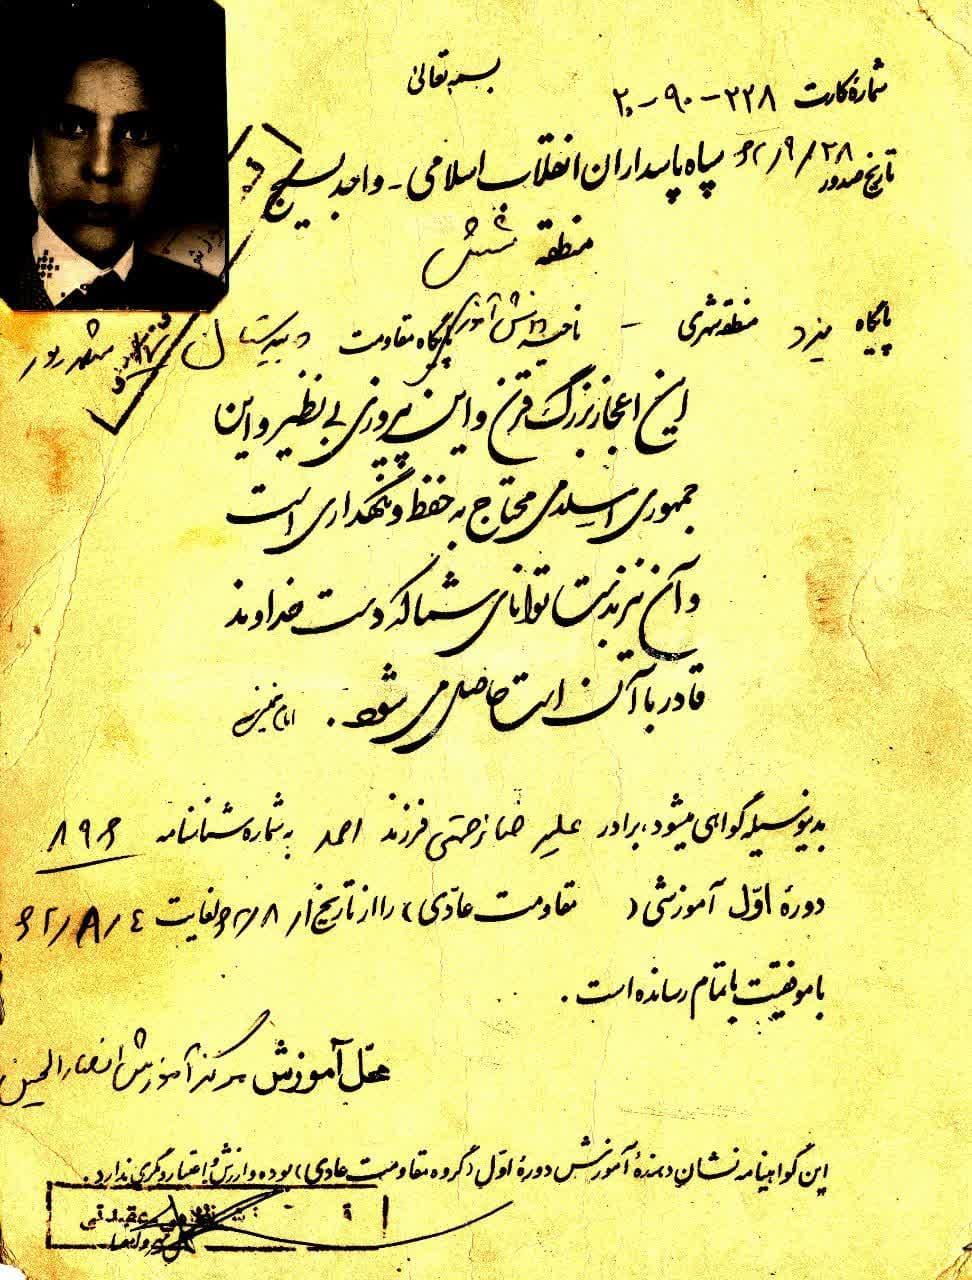 بسمه تعالی
شماره کارت ۲۲۸-۹۰-۲۰
تاریخ صدور ۶۲/۹/۲۸
سپاه پاسداران انقلاب اسلامی - واحد بسیج
منطقه شش
پایگاه یزد منطقه شهری - ناحیه دانش آموزی پایگاه مقاومت دبیرستان
این اعجاز بزرگ قرن و این پیروزی بی نظیر و این
جمهوری اسلامی محتاج به حفظ و نگهداری است
و آن نیز بدست توانای شما که دست خداوند
قادر با آن است حاصل می شود.
امام خمینی
بدینوسیله گواهی میشود، برادر علیرضا زحمتی فرزند احمد به شماره شناسنامه ۸۹۶
دورهٔ اوّل آموزشی (مقاومت عادّی) را از تاریخ ۶۲/۸/۱ لغایت ۶۲/۸/۴
با موفقیت باتمام رسانده است.
محلّ آموزش مرکز آموزش انصار الحسین
این گواهینامه نشان دهندهٔ آموزش دورهٔ اوّل (گروه مقاومت عادی) بوده و ارزش و اعتبار دیگری ندارد.